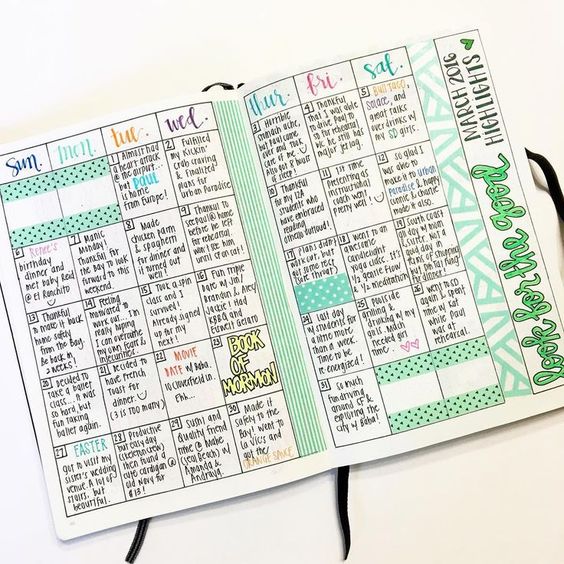 sun.
mon.
tue.
wed.
thur.
fri.
sat.
MARCH 2016
HIGHLIGHTS
look for the good
1 Almost had
a heart attack
@ the airport..
but PAUL
is home
from Europe!
2 Fulfilled
my
Kickin'
crab craving
& finalized
plans for
urban Paradise
3 Horrible
stomach ache,
but Paul came
over and took
care of me.
4 Thankful
that I was
able to drive
Paul to
SD for rehearsal
b/c he still has
major jetlag.
5 Bull Taco,
Solace, and
great talks
over drinks
w/ my
SD girls.
6 Renee's
birthday
dinner and
met baby Reid
@ El Ranchito
7 Manic
Monday!
Thankful for
the Bay to look
forward to this
weekend.
8 Made
chicken parm
& spaghetti
for dinner
and it
turned out
9 Thankful to
see Paul @ home
before he left
for rehearsal
won't see him
until SF on Sat!
10 Thankful
for my IZA
students
who have
embraced
reading
11 1st time
presenting as
instructional
coach went
pretty well!
12 So glad I
was able to
make it to
Urban
Paradise & happy
Connie &
Charlie made it also.
13 Thankful
to make it back
home safely
from the Bay.
Be back in
2 weeks!
14 Feeling
motivated to
work out... I'm
really hoping
I can overcome
my own fears &
insecurities.
15 Took a spin
class and I
survived!
Already
signed up
for my next!
16 Fun triple
date w/ Jim &
Brandon & Alex,
Jackie &
Chad @ KBBQ &
Expert Gelato
17 Plans didn't
work out, but
got some rest
18 Went to an
awesome
candlelight
yoga class. It's
1/2 gentle flow
1/2 meditation
19 South coast
day w/ mom
& sister. It was a
good day
20 Decided to
take a ballet
class... It was
so hard, but
fun taking
ballet again.
21 Decided to
have French
toast for
dinner
(3 is too many)
22 MOVIE
DATE w/ Baba.
10 Cloverfield Ln.
Ehh...
23 BOOK
OF
MORMON
24 Last day
w/ students for
a time more
than a week.
Time to be
re-energized!
25 Poolside
grilling &
drinking w/ my
girls. Much
needed girl
time.
26 Went to SD
again. I spent
time w/ Kat
while
Paul was at
rehearsal.
27 EASTER
Got to visit my
sister's wedding
venue. A lot of
stairs, but
beautiful.
28 Productive
but easy day.
then found a
cute cardigan
@ Old Navy for
$13!
29 Sushi and
quality friend
time @ Mahe
(Seal Beach) w/
Amanda &
Andraya.
30 Made it
safely to the
Bay! Went to
La Vic's and
got the
ORANGE SAUCE
31 So much
fun driving
around SF &
exploring the
city w/ Baba!